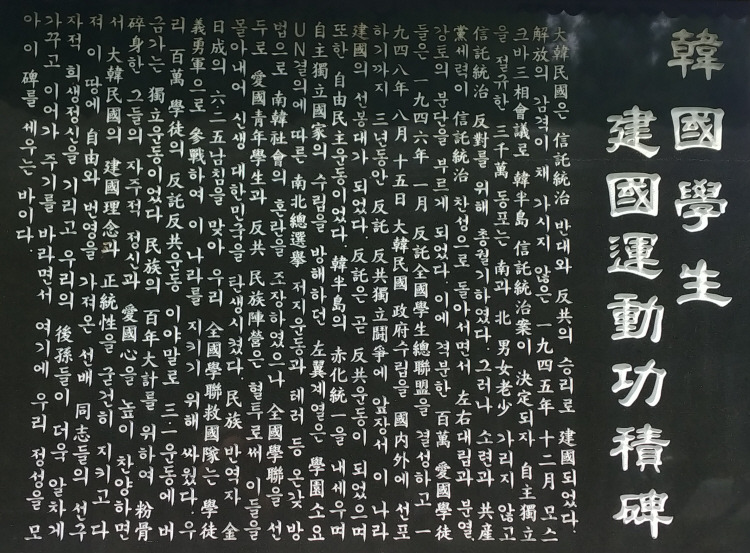 韓國學生
建國運動功積碑
大韓民國은 信託統治 반대와 反共의 승리로 建國되었다.
解放의 감격이 채 가시지 않은 一九四五年 十二月 모스
크바 三相會議로 韓半島 信託統治案이 決定되자 自主獨立
을 절규한 三千萬 동포는 南과 北 男女老少 가리지 않고
信託統治 反對를 위해 총궐기하였다. 그러나 소련과 共産
黨세력이 信託統治 찬성으로 돌아서면서 左右대립과 분열,
강토의 분단을 부르게 되었다. 이에 격분한 百萬 愛國學徒
들은 一九四六年 一月 反託全國學生總聯盟을 결성하고 一
九四八年 八月 十五日 大韓民國 政府수립을 國內外에 선포
하기까지 三년동안 反託 反共獨立鬪爭에 앞장서 이 나라
建國의 선봉대가 되었다. 反託은 곧 反共운동이 되었으며
또한 자유민주운동이었다. 韓半島의 赤化統一을 내세우며
自主獨立國家의 수립을 방해하던 左翼계열은 學園소요
UN결의에 따른 南北總選擧 저지운동과 테러 등 온갖 방
법으로 南韓社會의 혼란을 조장하였으나 全國學聯을 선
두로 愛國青年學生과 反共 民族陣營은 혈투로써 이들을
몰아내어 신생 대한민국을 탄생시켰다. 民族 반역자 金
日成의 六·二五남침을 맞아 우리 全國學聯救國隊는 學徒
義勇軍으로 參戰하여 이 나라를 지키기 위해 싸웠다. 우
리 百萬 學徒의 反託反共운동 이야말로 三一운동에 버
금가는 獨立운동이었다. 民族의 百年大計를 위하여 粉骨
碎身한 그들의 자주적 정신과 愛國心을 높이 찬양하면
서 大韓民國의 建國理念과 正統性을 굳건히 지키고 다
져 이 땅에 자유와 번영을 가져온 선배 同志들의 선구
자적 희생정신을 기리고 우리의 後孫들이 더욱 알차게
가꾸고 이어가 주기를 바라면서 여기에 우리 정성을 모
아 이 碑를 세우는 바이다.